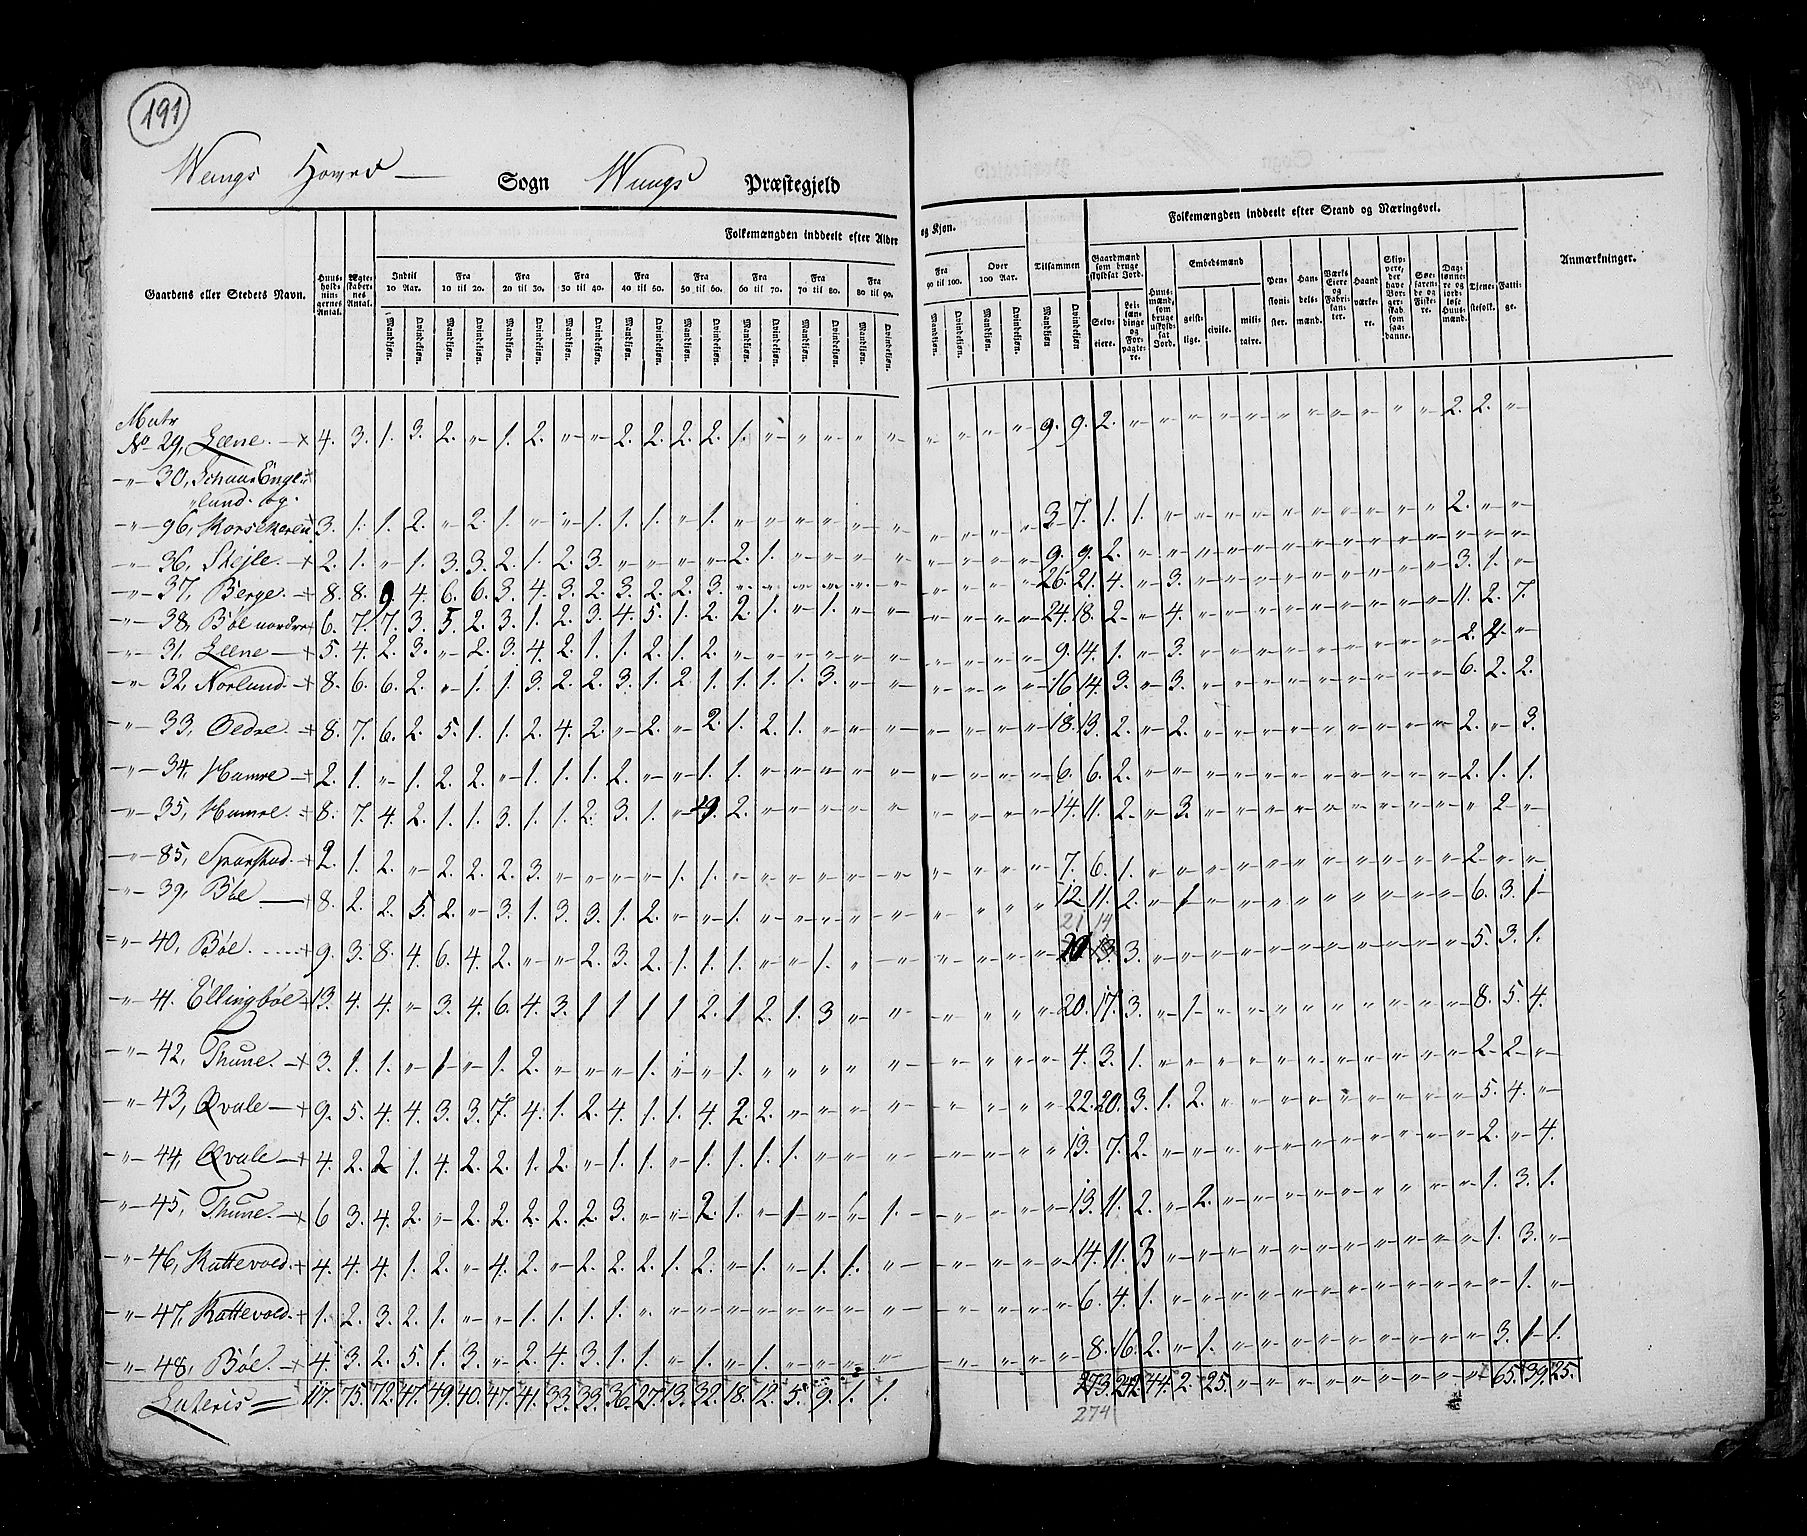 191
Wangs Hoved — Sogn Wangs Præstegjeld
Folkemængden inddeelt efter Alder og Kjøn.
Folkemængden inddeelt efter Stand og Næringsvei.
Gaardens eller Stedets Navn.
Huus-holdnin-gernes Antal.
Ægte-skaber-nes Antal.
Indtil 10 Aar.
Fra 10 til 20.
Fra 20 til 30.
Fra 30 til 40.
Fra 40 til 50.
Fra 50 til 60.
Fra 60 til 70.
Fra 70 til 80.
Fra 80 til 90.
Fra 90 til 100.
Over 100 Aar.
Tilsammen
Mandkjøn. Qvindekjøn.
Gaardmænd som bruge skyldsat Jord.
Selv-eiere.
Lei-lændinge og For-pagte-re.
Huus-mænd, som bruge uskyld-sat Jord.
Embedsmænd
geist-lige.
civile.
mili-taire.
Pen-sioni-ster.
Han-dels-mænd.
Værks Eiere og Fabri-kan-ter.
Haand værke-re.
Skip-pere, der have Bor-ger-skab som saa-danne.
Søe-faren-de og Fiske-re.
Dag-lønne-re og jord-løse Huus-mænd.
Tjene-stefolk.
Fatti-ge.
Anmærkninger.
Matr
No 29, Leene. — × 4. 3. 1. 3. 2. " 1. 2. " " 2. 2. 2. 2. 1. " " " " " " " " " 9. 9. 2. " " " " " " " " " " " 2. 2. "
" 30, Schaar Enge-
lund. og
" 96, Korsekaren 3. 1. 1. 2. " 2. 1. " " 1. 1. 1. " 1. " " " " " " " " " " 3. 7. 1. 1. " " " " " " " " " " 2. " "
" 36, Skejle. — + 2. 1. " 1. 3. 3. 2. 1. 2. 3. " " " " 2. 1. " " " " " " " " 9. 9. 2. " " " " " " " " " " " " " "
" 37, Berge. — + 8. 8. 9 4. 6. 6. 3. 4. 3. 2. 3. 2. 2. 3. " " " " " " " " " " 26. 21. 4. " 3. " " " " " " " " " 3. 1. "
" 38, Böe nordre + 6. 7. 7. 3. 5. 2. 3. 1. 2. 3. 4. 5. 1. 2. 2. 1. " 1. " " " " " " 24. 18. 2. " 4. " " " " " " " " " 11. 2. 7.
" 31. Leene — + 5. 4. 2. 3. " 2. 3. 4. 2. 1. 1. 2. 1. 2. " " " " " " " " " " 9. 14. 1. " 3. " " " " " " " " " 2. 4. "
" 32, Norlund. + 8. 6. 6. 2. " 1. 1. 3. 2. 2. 3. 1. 2. 1. 1. 1. 1. 3. " " " " " " 16 14. 3. " 3. " " " " " " " " " 6. 2. 2.
" 33, Oedre. — + 8. 7. 6. 2. 5. 1. 1. 2. 4. 2. " 2. " 2. 1. 2. 1. " " " " " " " 18. 13. 2. " 2. " " " " " " " " " 2. " 3.
" 34, Hamre — + 2. 1. " 1. 2. 2. " 1. 1. 1. 2. " " 1. 1. " " " " " " " " " 6. 6. 2. " " " " " " " " " " " 2. 1. 1.
" 35, Hamre. + 8. 7. 4. 2. 1. 1. 3. 1. 1. 2. 3. 1. " 4. 2. " " " " " " " " " 14. 11. 2. " 3. " " " " " " " " " " 2. "
" 85, Sparstad. + 2. 1. 2. " 2. 2. 2. 3. " " " " 1. 1. " " " " " " " " " " 7. 6. 1. " " " " " " " " " " " 2. " "
" 39, Böe — + 8. 2. 2. 5. 2. " 3. 1. 3. 3. 1. 2. " " 1. " " " " " " " " " 12 11. 2. " 1 " " " " " " " " " 6. 3. 1
21 14
" 40, Böe. + 9. 3. 8. 4. 6. 4. 2. " " 2. 3. 2. 1. 1. 1. " " 1. " " " " " " 20 13. 3. " " " " " " " " " " " 5. 3. 1.
" 41. Ellingböe + 13. 4. 4. " 3. 4. 6. 4. 3. 1 1 1 1 2. 1. 2. 1. 3 " " " " " " 20. 17. 3. " 1. " " " " " " " " " 8. 5. 4.
" 42, Thune. — + 3. 1. 1. " 1 " 1. 2. " " " 1. " " 1. " " " " " " " " " 4. 3. 1. " " " " " " " " " " " 2. 2. "
" 43, Qvale — + 9. 5. 4. 4. 3. 3. 7. 4. 1. 2. 4. 1. 1. 4 2. 2. " " " " " " " " 22. 20. 3. 1. 2. " " " " " " " " " 5. 4. "
" 44, Qvale — + 4. 2. 2 1. 4. 2. 2. 1. 2. " 1. 1. " 1. 1. 1. 1. " " " " " " " 13. 7. 2. " " " " " " " " " " " 2. " 4.
" 45, Thune. — + 6 3. 4. 2. " 2. 2. 2. 2. 2. 3. " " 2. 1. " 1 " " 1. " " " " 13. 11. 2. " 2. " " " " " " " " " 1. 3. 1.
" 46, Kattevold. + 4. 4. 4. 1. 2. " 4. 2. " 2. 2. 2. 1. 2. " 1. " 1. 1. " " " " " 14. 11. 3 " " " " " " " " " " " 1. 3. "
" 47, Kattevold. + 1. 2. 3. 2. 1. " " 1. 1. 1. 1. " " " " " " " " " " " " " 6. 4. 1. " " " " " " " " " " " " 1. "
" 48, Böe. — + 4. 3. 2. 5. 1. 3. " 2. 4. 3. 1. 1. " 1. " 1. " " " " " " " " 8. 16. 2. " 1. " " " " " " " " " 3. 1 1.
Lateris = 117. 75. 72. 47. 49. 40. 47. 41. 33. 33. 36. 27. 13. 32. 18. 12. 5. 9. 1. 1. 273. 242. 44. 2. 25. " " " " " " " " " 65. 39. 25.
274